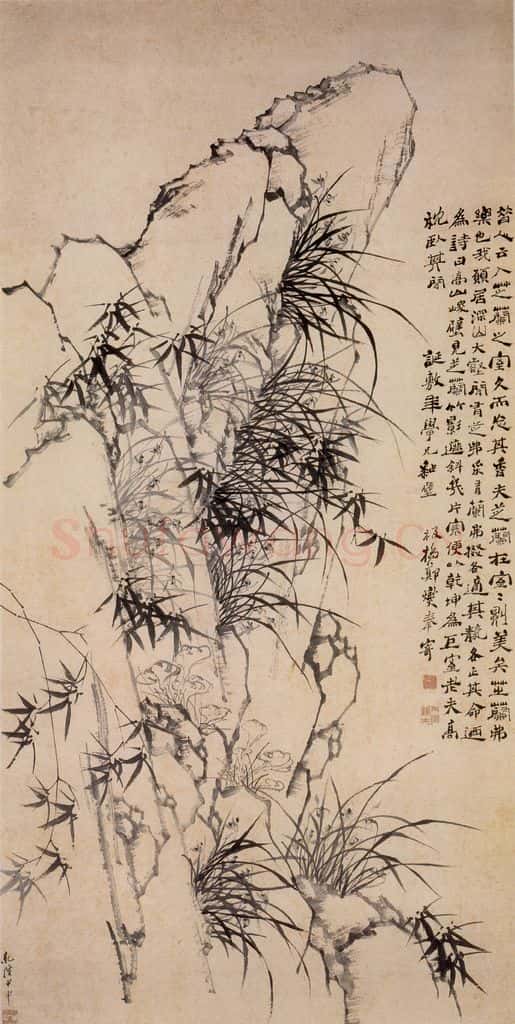 昔人云入芝蘭之室久而忘其香夫芝蘭在室々則美矣芝蘭弗
樂也我願居深山大壑間有芝弗采有蘭弗掇各適其各正其命迺
為詩曰高山峻壁見芝蘭竹影遮斜幾片寒便以乾坤為巨室老夫高
枕臥其間 誕敷年學兄 板橋鄭燮奉寄
乾隆